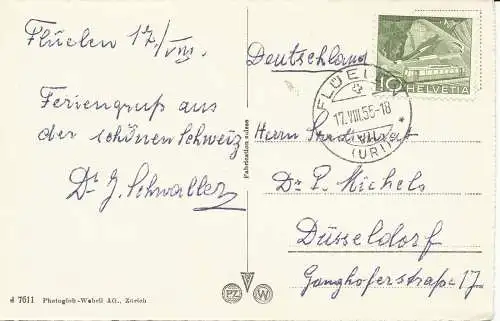 Flüelen 17/VIII.
Feriengruß aus
der schönen Schweiz
Dr. J. Schwaller
d 7611 Photoglob-Wehrli AG., Zürich
Fabrication suisse
PZ W
Deutschland
10 HELVETIA
FLÜELEN
17.VIII.55-18
(URI)
Herrn Stadtrat
Dr. P. Michels
Düsseldorf
Ganghoferstraße 17.